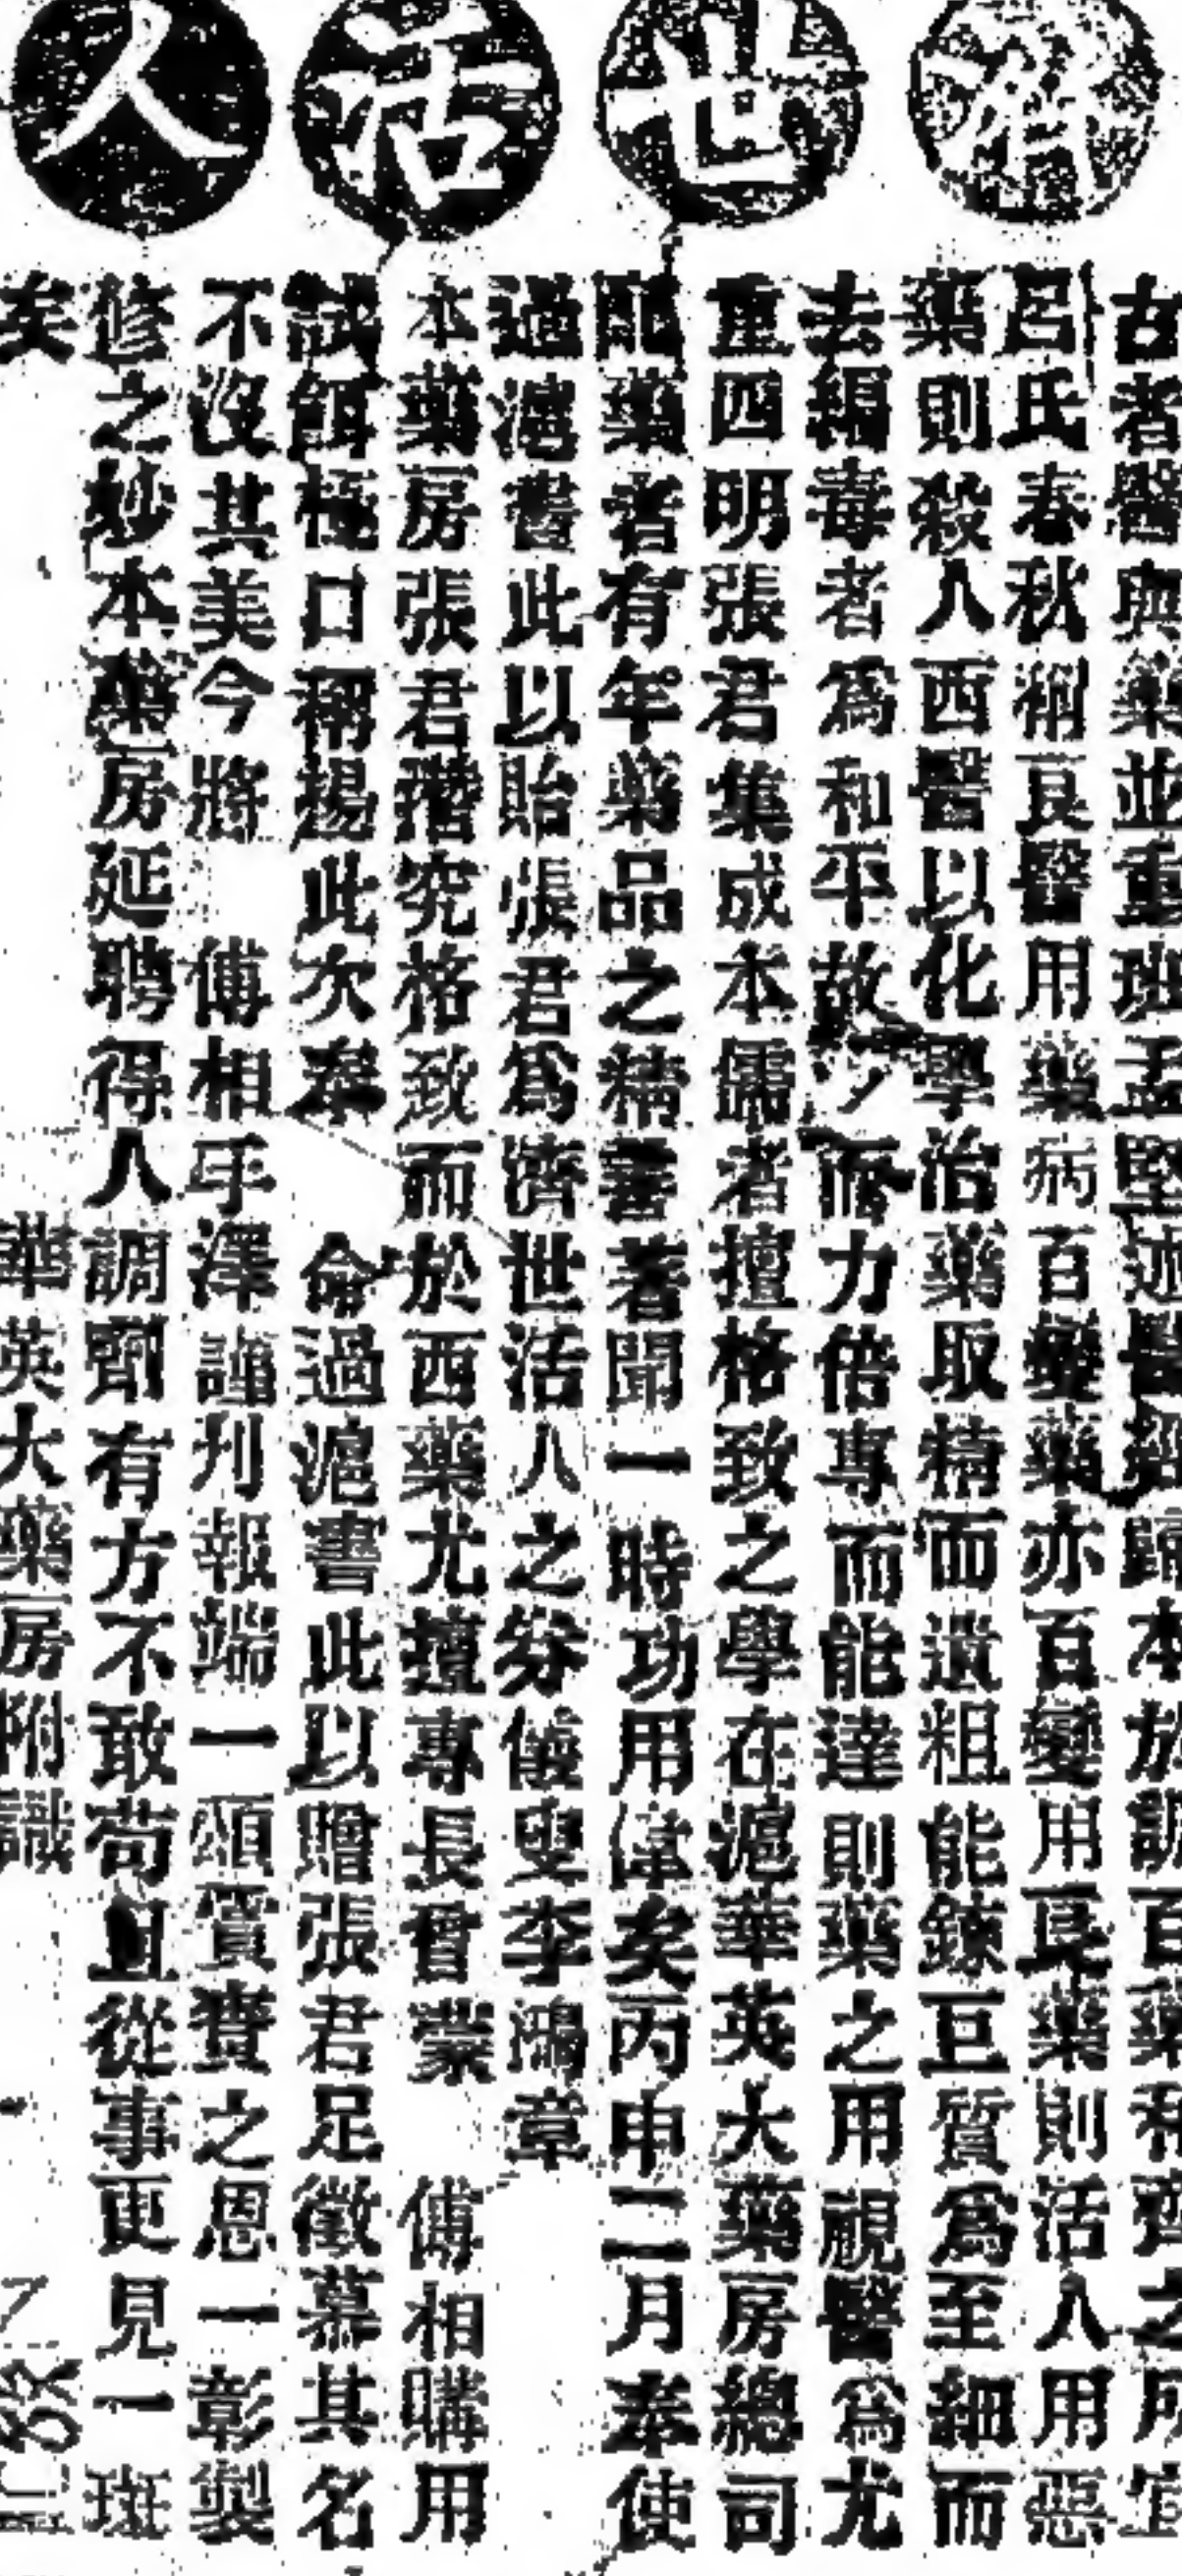 濟世活人
古者醫與藥並重班孟堅述醫經歸本於調百藥和齊之所宜
呂氏春秋稱良醫用藥病百變藥亦百變用良藥則活人用惡
藥則殺人西醫以化學治藥取精而遺粗能鍊巨質爲至細而
去編毒者爲和平故少而力倍專而能達則藥之用視醫爲尤
重四明張君集成本儒者擅格致之學在滬華英大藥房總司
配藥者有年藥品之精著聞一時功用偉矣丙申二月奉使
過滬書此以貽張君爲濟世活人之券儀叟李鴻章
本藥房張君潛究格致而於西藥尤擅專長曾蒙 傅相購用
試餌極口稱揚此次奉 命過滬書此以贈張君足徵慕其名
不沒其美今將 傅相手澤謹刊報端一頌寶賚之恩一彰製
修之妙本藥房延聘得人調劑有方不敢苟且從事更見一斑
矣 華英大藥房附識